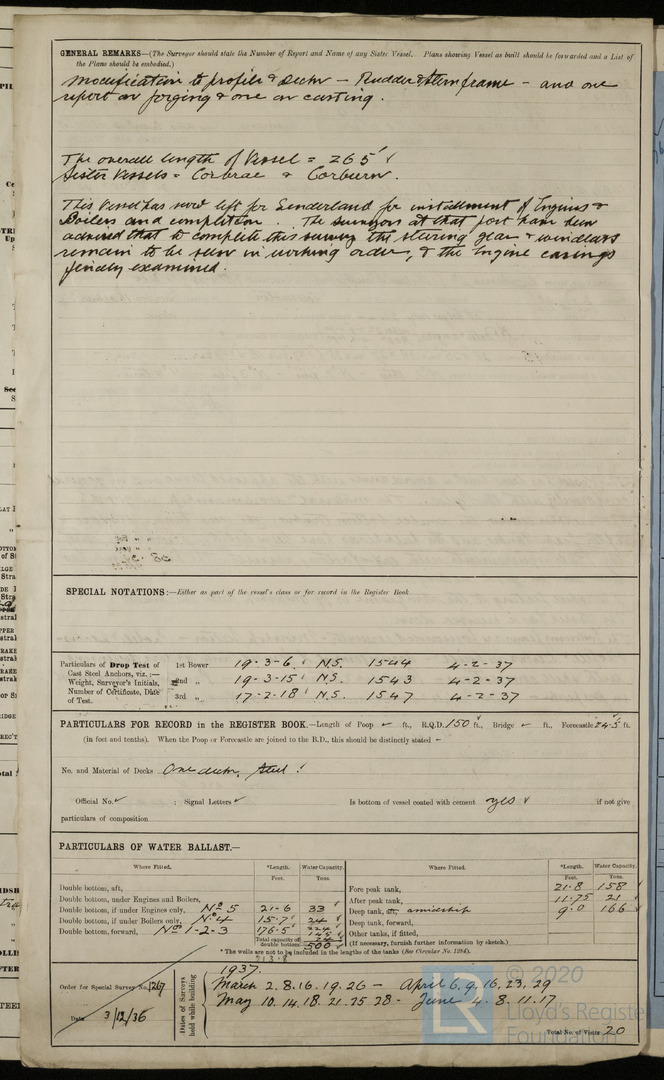 GENERAL REMARKS—(The Surveyor should state the Number of Report and Name of any Sister Vessel. Plans showing Vessel as built should be forwarded and a List of
the Plans should be embodied.)
Modification to profile & decks — Rudder & Stern frame — and one
report on forging & one on casting.
The overall length of Vessel = 265'
Sister Vessels = Corbrae & Corburn.
This Vessel has now left for Sunderland for installment of Engines &
Boilers and completion. The surveyors at that port have been
advised that to complete this survey the steering gear & windlass
remain to be seen in working order, & the Engine casings
finally examined.
SPECIAL NOTATIONS:—Either as part of the vessel's class or for record in the Register Book
Particulars of Drop Test of 1st Bower 19-3-6 N.S. 1544 4-2-37
Cast Steel Anchors, viz.:—
Weight, Surveyor's Initials, 2nd „ 19-3-15 N.S. 1543 4-2-37
Number of Certificate, Date
of Test. 3rd „ 17-2-18 N.S. 1547 4-2-37
PARTICULARS FOR RECORD in the REGISTER BOOK.—Length of Poop ft., R.Q.D. 150 ft., Bridge ft., Forecastle 24.5 ft.
(in feet and tenths). When the Poop or Forecastle are joined to the B.D., this should be distinctly stated
No. and Material of Decks One deck, Steel
Official No. ; Signal Letters Is bottom of vessel coated with cement yes if not give
particulars of composition
PARTICULARS OF WATER BALLAST.—
Where Fitted. *Length. Water Capacity. Where Fitted. *Length. Water Capacity.
Feet. Tons. Feet. Tons.
Double bottom, aft, Fore peak tank, 21.8 158
Double bottom, under Engines and Boilers, After peak tank, 11.75 21
Double bottom, if under Engines only, No 5 21-6 33 Deep tank, aft, amidship 9.0 166
Double bottom, if under Boilers only, No 4 15.7 24 Deep tank, forward,
Double bottom, forward, Nos 1-2-3 176.5 Other tanks, if fitted,
Total capacity of double bottom 500 (If necessary, furnish further information by sketch.)
213.8
*The wells are not to be included in the lengths of the tanks (See Circular No. 1284).
Order for Special Survey No. 1267
Date 3/12/36
Dates of Surveys held while building
1937.
March 2.8.16.19.26 — April 6.9.16.23.29
May 10.14.18.21.25.28 — June 4.8.11.17
Total No. of Visits 20
© 2020
Lloyd's Register
Foundation